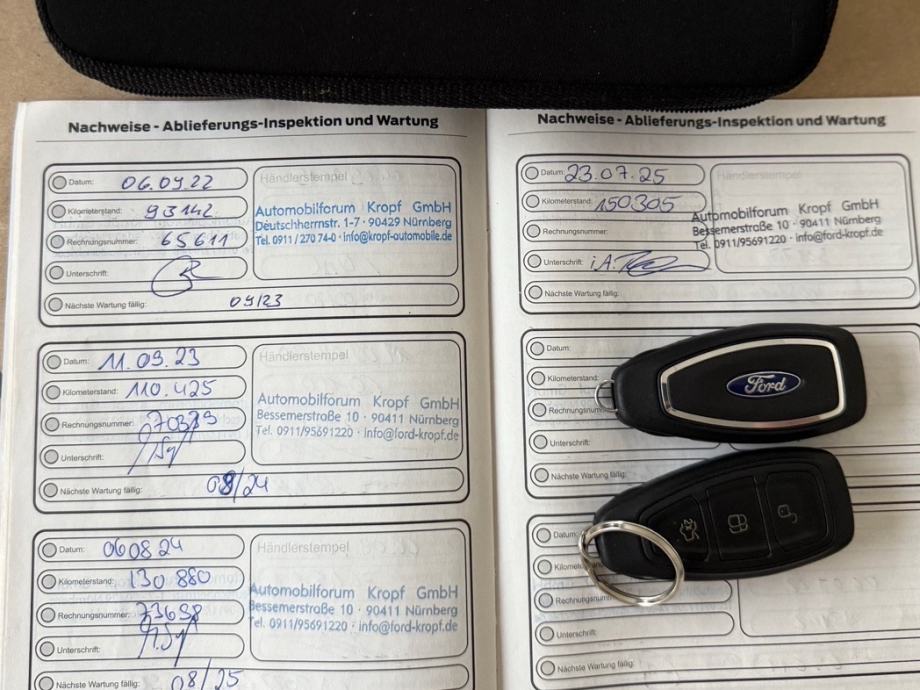 Nachweise - Ablieferungs-Inspektion und Wartung
Datum: 06.09.22
Kilometerstand: 93142
Rechnungsnummer: 65611
Unterschrift:
Nächste Wartung fällig: 09/23
Händlerstempel
Automobilforum Kropf GmbH
Deutschherrnstr. 1-7 · 90429 Nürnberg
Tel. 0911 / 270 74-0 · info@kropf-automobile.de
Datum: 11.09.23
Kilometerstand: 110.425
Rechnungsnummer:
Unterschrift:
Nächste Wartung fällig: 08/24
Händlerstempel
Automobilforum Kropf GmbH
Bessemerstraße 10 · 90411 Nürnberg
Tel. 0911/95691220 · info@ford-kropf.de
Datum: 060824
Kilometerstand: 130 880
Rechnungsnummer: 73698
Unterschrift:
Nächste Wartung fällig: 08/25
Händlerstempel
Automobilforum Kropf GmbH
Bessemerstraße 10 · 90411 Nürnberg
Tel. 0911/95691220 · info@ford-kropf.de
Nachweise - Ablieferungs-Inspektion und Wartung
Datum: 23.07.25
Kilometerstand: 150305
Rechnungsnummer:
Unterschrift: i.A.
Nächste Wartung fällig:
Händlerstempel
Automobilforum Kropf GmbH
Bessemerstraße 10 · 90411 Nürnberg
Tel. 0911/95691220 · info@ford-kropf.de
Datum:
Kilometerstand:
Rechnungsnumm
Unterschrift:
Nächste Wartung fällig:
Ford
Datum:
Kilome
Rechnungsnum
Unterschrift:
Nächste Wartung fällig: